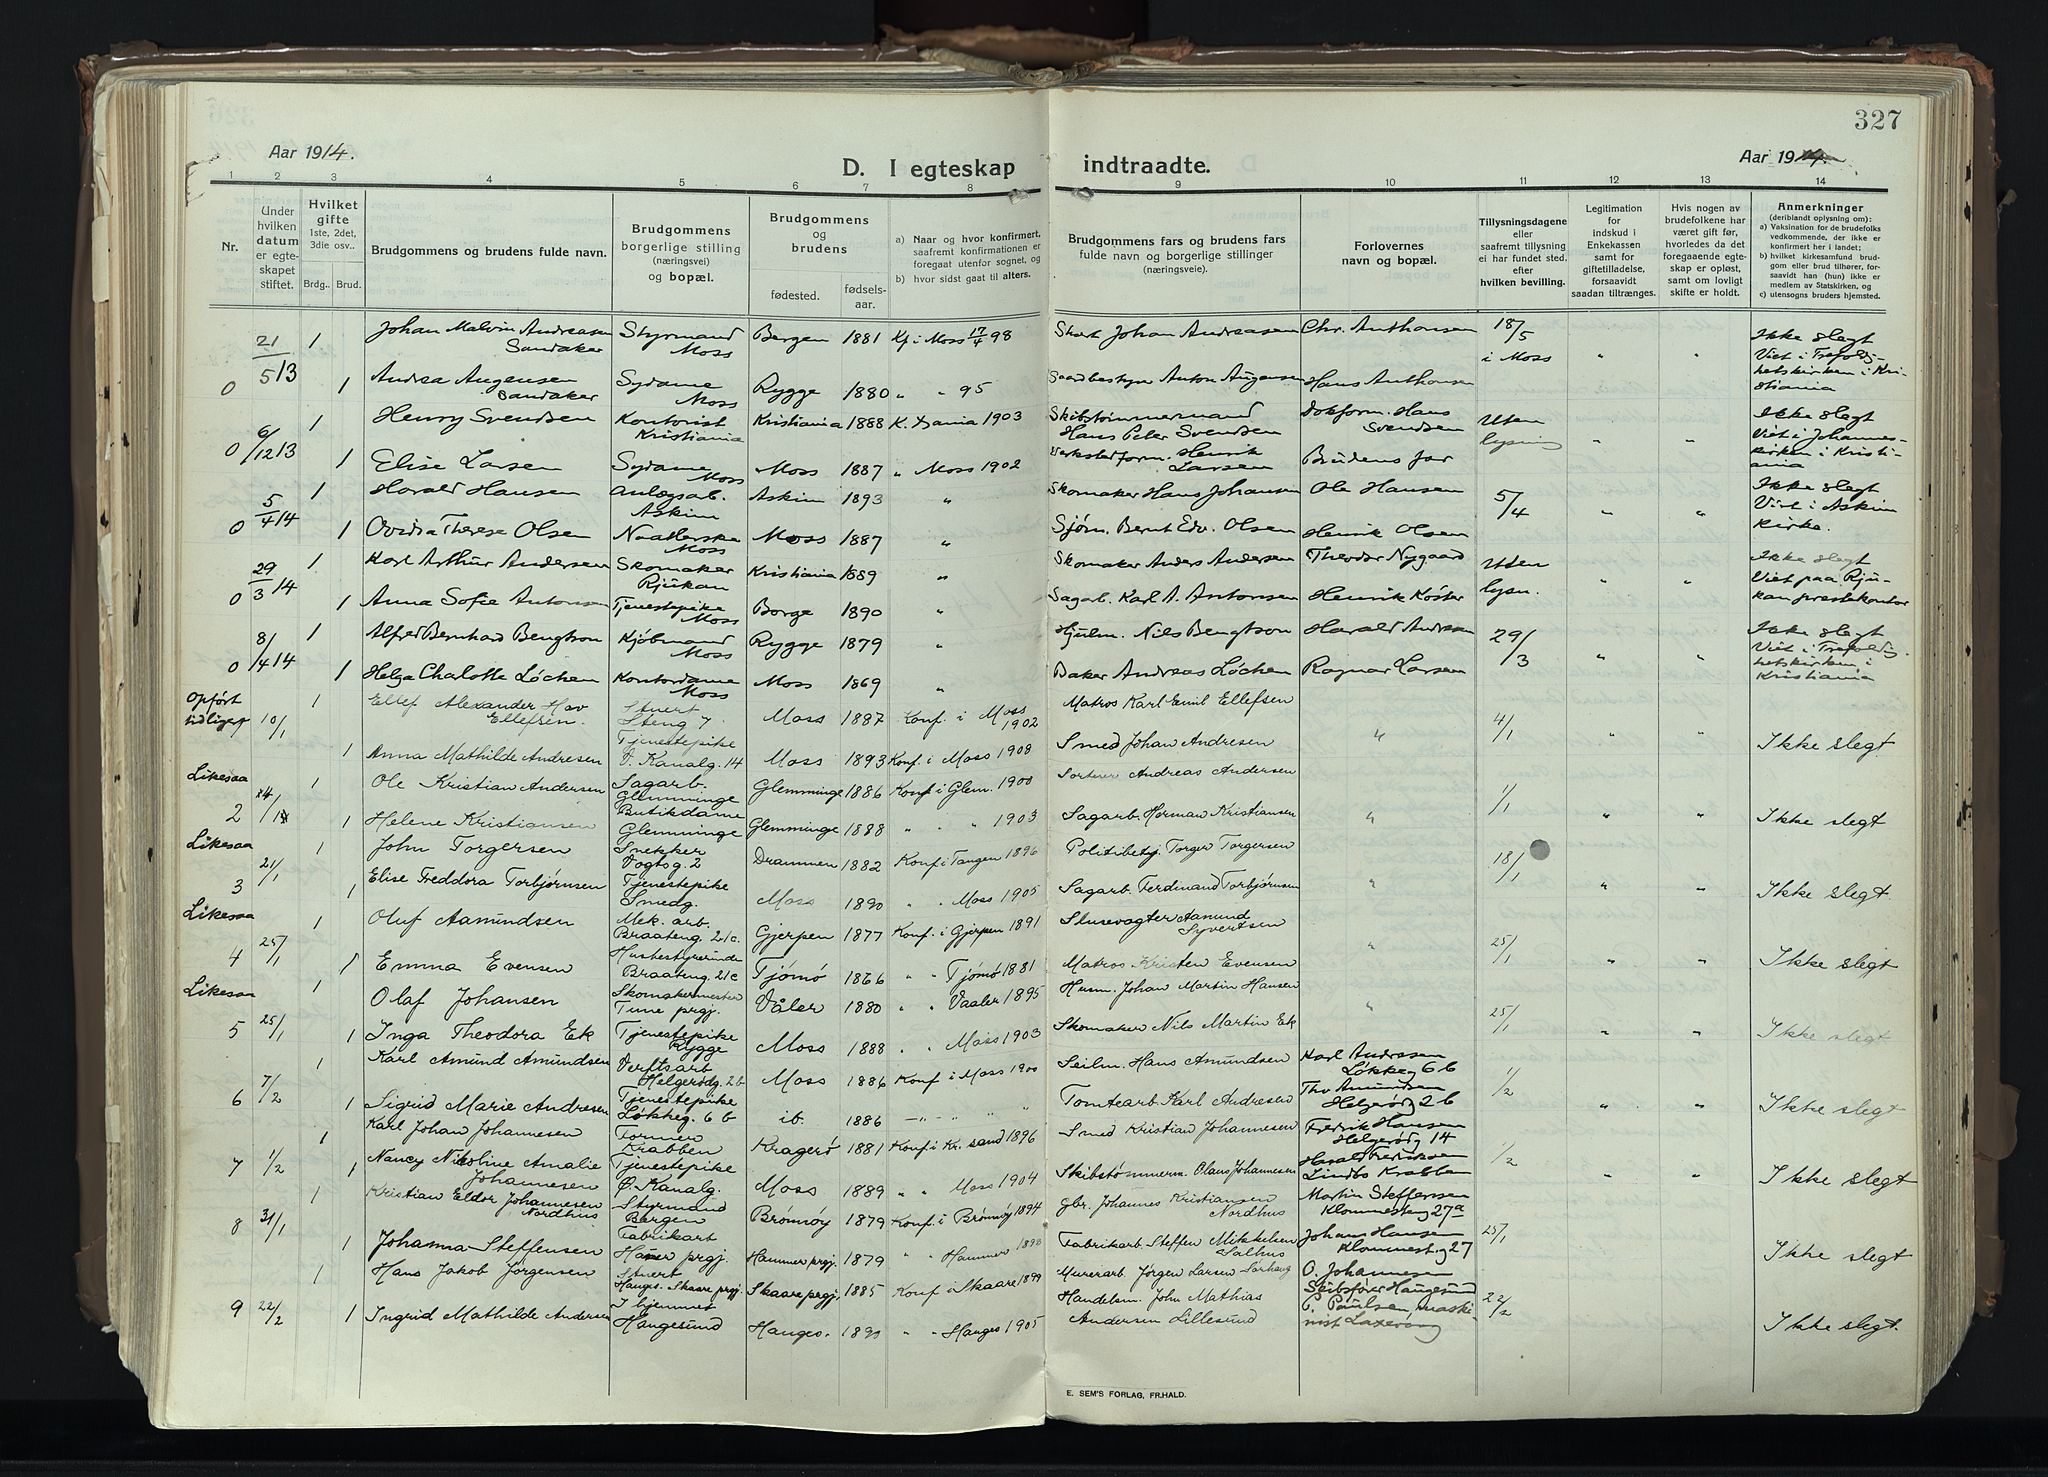 327
Aar 1914.
D. I egteskap indtraadte.
Aar 19
1 2 3 4 5 6 7 8 9 10 11 12 13 14
Nr.
Under hvilken datum er egteskapet stiftet.
Hvilket gifte 1ste, 2det, 3die osv..
Brdg. Brud.
Brudgommens og brudens fulde navn.
Brudgommens borgerlige stilling (næringsvei) og bopæl.
Brudgommens og brudens
fødested. fødsels-aar.
a) Naar og hvor konfirmert, saafremt konfirmationen er foregaat utenfor sognet, og
b) hvor sidst gaat til alters.
Brudgommens fars og brudens fars fulde navn og borgerlige stillinger (næringsveie).
Forlovernes navn og bopæl.
Tillysningsdagene eller saafremt tillysning ei har fundet sted, efter hvilken bevilling.
Legitimation for indskud i Enkekassen samt for giftetilladelse, forsaavidt saadan tiltrænges.
Hvis nogen av brudefolkene har været gift før, hvorledes da det foregaaende egteskap er opløst, samt om lovligt skifte er holdt.
Anmerkninger (deriblandt oplysning om):
a) Vaksination for de brudefolks vedkommende, der ikke er konfirmert her i landet;
b) hvilket kirkesamfund brudgom eller brud tilhører, forsaavidt han (hun) ikke er medlem av Statskirken, og
c) utensogns bruders hjemsted.
0 21/5 13 1 Johan Malvin Andreasen Sandaker Styrmand Moss Bergen 1881 Kf. i Moss 17/4 98 Johan Andreasen Chr. Anthonsen 18/5 i Moss " " Ikke slegt Viet i Trefoldighetskirken i Kristiania
1 Andrea Augensen Sandaker Sydame Moss Rygge 1880 " " 95 Gaardbestyrer Anton Augensen Hans Anthonsen
0 6/12 13 1 Henry Svendsen Kontorist Kristiania Kristiania 1888 K. Xania 1903 Skibstømmermand Hans Peter Svendsen Dokform. Hans Svendsen Uten lysning " " Ikke slegt Viet i Johanneskirken i Kristiania
1 Elise Larsen Sydame Moss Moss 1887 " Moss 1902 Verkstedform. Henrik Larsen Brudens far
0 5/4 14 1 Harald Hansen Anlægsarb. Askim Askim 1893 " Skomaker Hans Johansen Ole Hansen 5/4 " " Ikke slegt Viet i Askim Kirke.
1 Ovidia Therese Olsen Naatlerske Moss Moss 1887 " Sjøm. Bernt Edv. Olsen Henrik Olsen
0 29/3 14 1 Karl Arthur Andersen Skomaker Rjukan Kristiania 1889 " Skomaker Anders Andersen Theodor Nygaard Uten lysn. " " Ikke slegt Viet paa Rjukan prestekontor
1 Anna Sofie Antonsen Tjenestepike Moss Borge 1890 " Sagarb. Karl A. Antonsen Henrik Köster
0 8/4 14 1 Alfred Bernhard Bengtson Kjøbmand Moss Rygge 1879 " Hjulm. Nils Bengtson Harald Andresen 29/3 " " Ikke slegt Viet i Trefoldighetskirken i Kristiania
1 Helga Chalotte Löchen Kontordame Moss Moss 1869 " Baker Andreas Löchen Ragnar Larsen
Opført tidligere 10/1 1 Ellef Alexander Hav Ellefsen. Stuert Steng 7 Moss 1887 Konf. i Moss 1902 Matros Karl Emil Ellefsen " 4/1 " " Ikke slegt
1 Anna Mathilde Andresen Tjenestepike V. Kanalg. 14 Moss 1893 Konf. i Moss 1908 Smed Johan Andresen
Likesaa 2 1 Ole Kristian Andersen Sagarb. Glemminge Glemminge 1886 Konf. i Glem. 1900 Sorterer Andreas Andersen " 1/1 " " Ikke slegt
1 Helene Kristiansen Butikdame Glemminge Glemminge 1888 " " " 1903 Sagarb. Herman Kristiansen
Likesaa 3 21/1 1 John Torgersen Snekker Vogtsg 2 Drammen 1882 Konf i Tangen 1896 Politibetj. Torger Torgersen " 18/1 " " Ikke slegt
1 Elise Freddora Torbjørnsen Tjenestepike Smedg. Moss 1890 " " Moss 1905 Sagarb. Ferdinand Torbjørnsen
Likesaa 4 25/1 1 Oluf Aamundsen Mek. arb. Braateng. 21c. Gjerpen 1877 Konf. i Gjerpen 1891 Slusevogter Aamund Syvertsen " 25/1 " " Ikke slegt
1 Emma Evensen Husbestyrerinde Braateng. 21c Tjömö 1866 " " Tjömö 1881 Matros Kristen Evensen
Likesaa 5 25/1 1 Olaf Johansen Skomakermester Tune prgj. Våler 1880 " " Vaaler 1895 Husm. Johan Martin Hansen " 25/1 " " Ikke slegt
1 Inga Theodora Ek Tjenestepike Rygge Moss 1888 " " Moss 1903 Skomaker Nils Martin Ek
6 7/2 1 Karl Amund Amundsen Verftsarb Helgerødg. 2b Moss 1886 Konf i Moss 1900 Seilm. Hans Amundsen Karl Andresen Løkkeg 6b 1/2 " " Ikke slegt
1 Sigrid Marie Andresen Tjenestepike Løkkeg. 6b ib. 1886 " " " Tomtearb. Karl Andresen Thv Amundsen Helgerødg 2b
7 1/2 1 Karl Johan Johannesen Former Krabben Kragerø 1881 Konf i Kr. sand 1896 Smed Kristian Johannesen Fredrik Hansen Helgerødg 14 1/2 " " Ikke slegt
1 Nancy Nikoline Amalie Johannesen Tjenestepike Ø. Kanalg. Moss 1889 " " Moss 1904 Skibstömmerm. Olaus Johannesen Harald Fredriksen Lindbo Krabben
8 31/1 1 Kristian Eldor Johannesen Nordhus Styrmand Bergen Brönnöy 1879 Konf. i Brönnöy 1894 gbr. Johannes Kristiansen Nordhus Martin Steffensen Klommesteng 27a 25/1 Ikke slegt
1 Johanna Steffensen Fabrikarb Hamer prgj. Hammer prgj. 1879 " " Hammer Fabrikarb. Steffen Mikkelsen Salhus Johan Hansen Klommest.g 27
9 22/2 1 Hans Jakob Jörgensen Stuert Hauges. Skaare prgj. Skaare prgj. 1885 Konf i Skaare 1899 Murerarb. Jörgen Larsen Sorhaug O. Johannesen Skibsfører Haugesund 22/2 Ikke slegt.
1 Ingrid Mathilde Andersen I hjemmet Haugesund Hauges. 1890 " " Hauges 1905 Handelsm. John Mathias Andersen Lillesund P. Paulsen, maskinist
E. SEM'S FORLAG, FR.HALD.